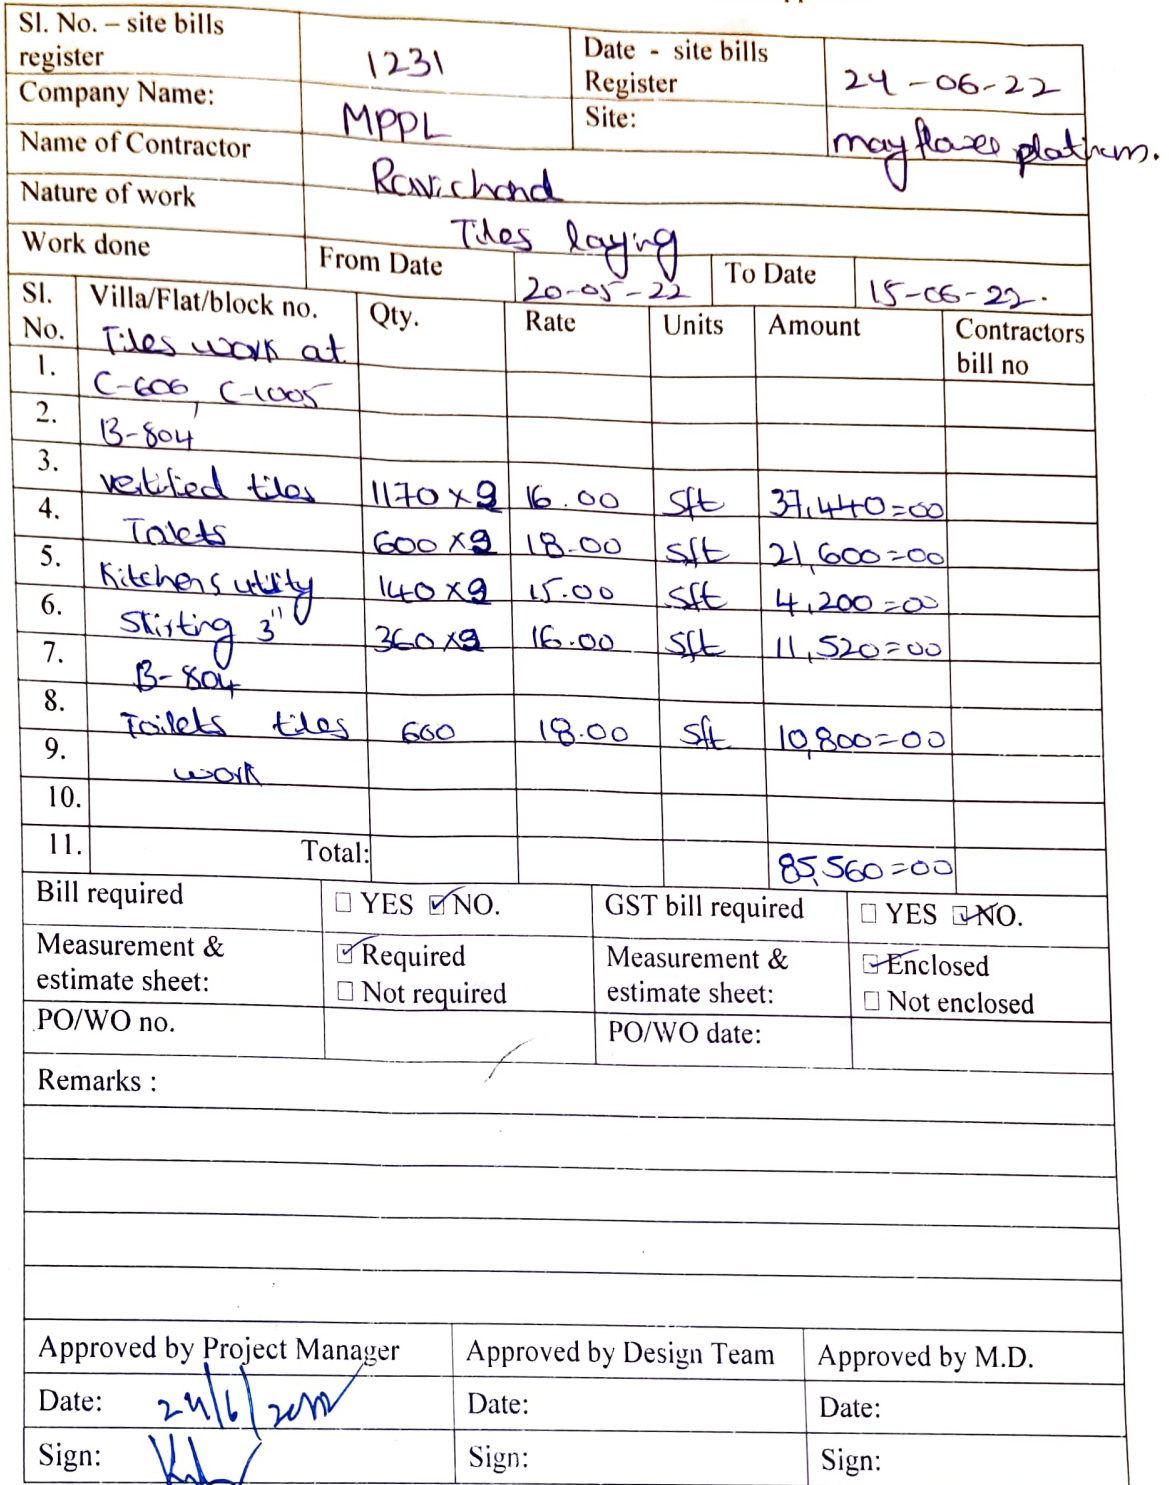 Sl. No. – site bills register 1231 Date - site bills Register 24-06-22
Company Name: MPPL Site: mayflower platinum.
Name of Contractor Ravichand
Nature of work Tiles laying
Work done From Date 20-05-22 To Date 15-06-22.
Sl. No. Villa/Flat/block no. Qty. Rate Units Amount Contractors bill no
1. Tiles work at
2. C-606, C-1005
3. B-804
4. vertified tiles 1170 x 2 16.00 sft 37,440=00
5. Toilets 600 x 2 18.00 sft 21,600=00
6. Kitchens utility 140 x 2 15.00 sft 4,200=00
7. Skirting 3" 360 x 2 16.00 sft 11,520=00
8. B-804
9. Toilets tiles 600 18.00 sft 10,800=00
10. work
11. Total: 85,560=00
Bill required □ YES ☑ NO. GST bill required □ YES ☑ NO.
Measurement & estimate sheet: ☑ Required □ Not required Measurement & estimate sheet: ☑ Enclosed □ Not enclosed
PO/WO no. PO/WO date:
Remarks :
Approved by Project Manager Approved by Design Team Approved by M.D.
Date: 24/6/2022 Date: Date:
Sign: Sign: Sign: